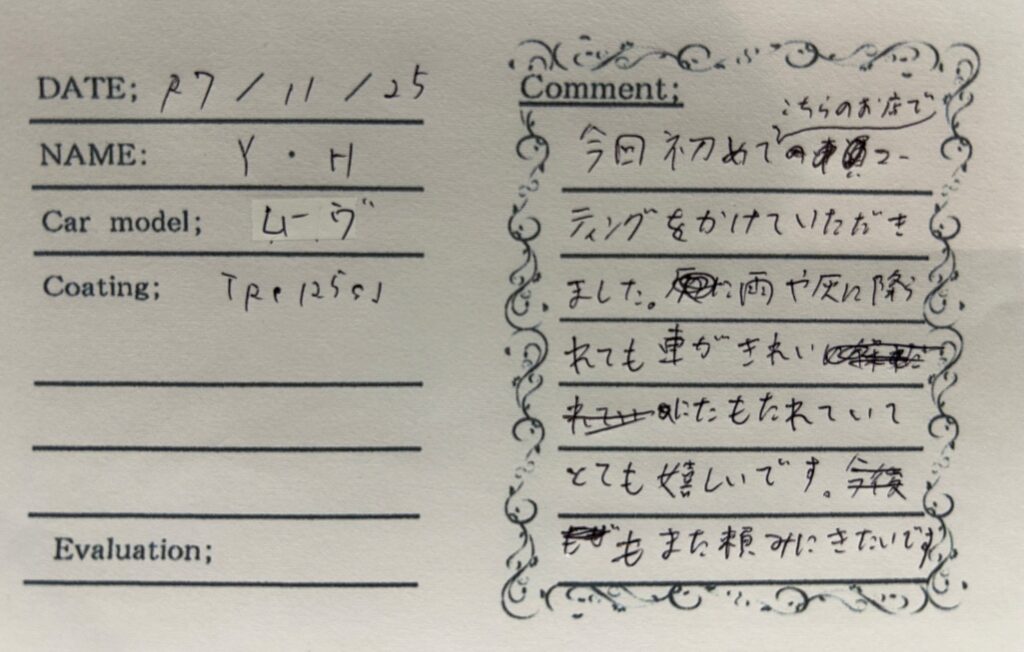 DATE; R7/11/25
NAME: Y・H
Car model; ムーヴ
Coating;
Evaluation;
Comment;
こちらのお店で
今回初めてコー
ティングをかけていただき
ました。雨や灰に降ら
れても車がきれい
にたもたれていて
とても嬉しいです。今後
もまた頼みにきたいです